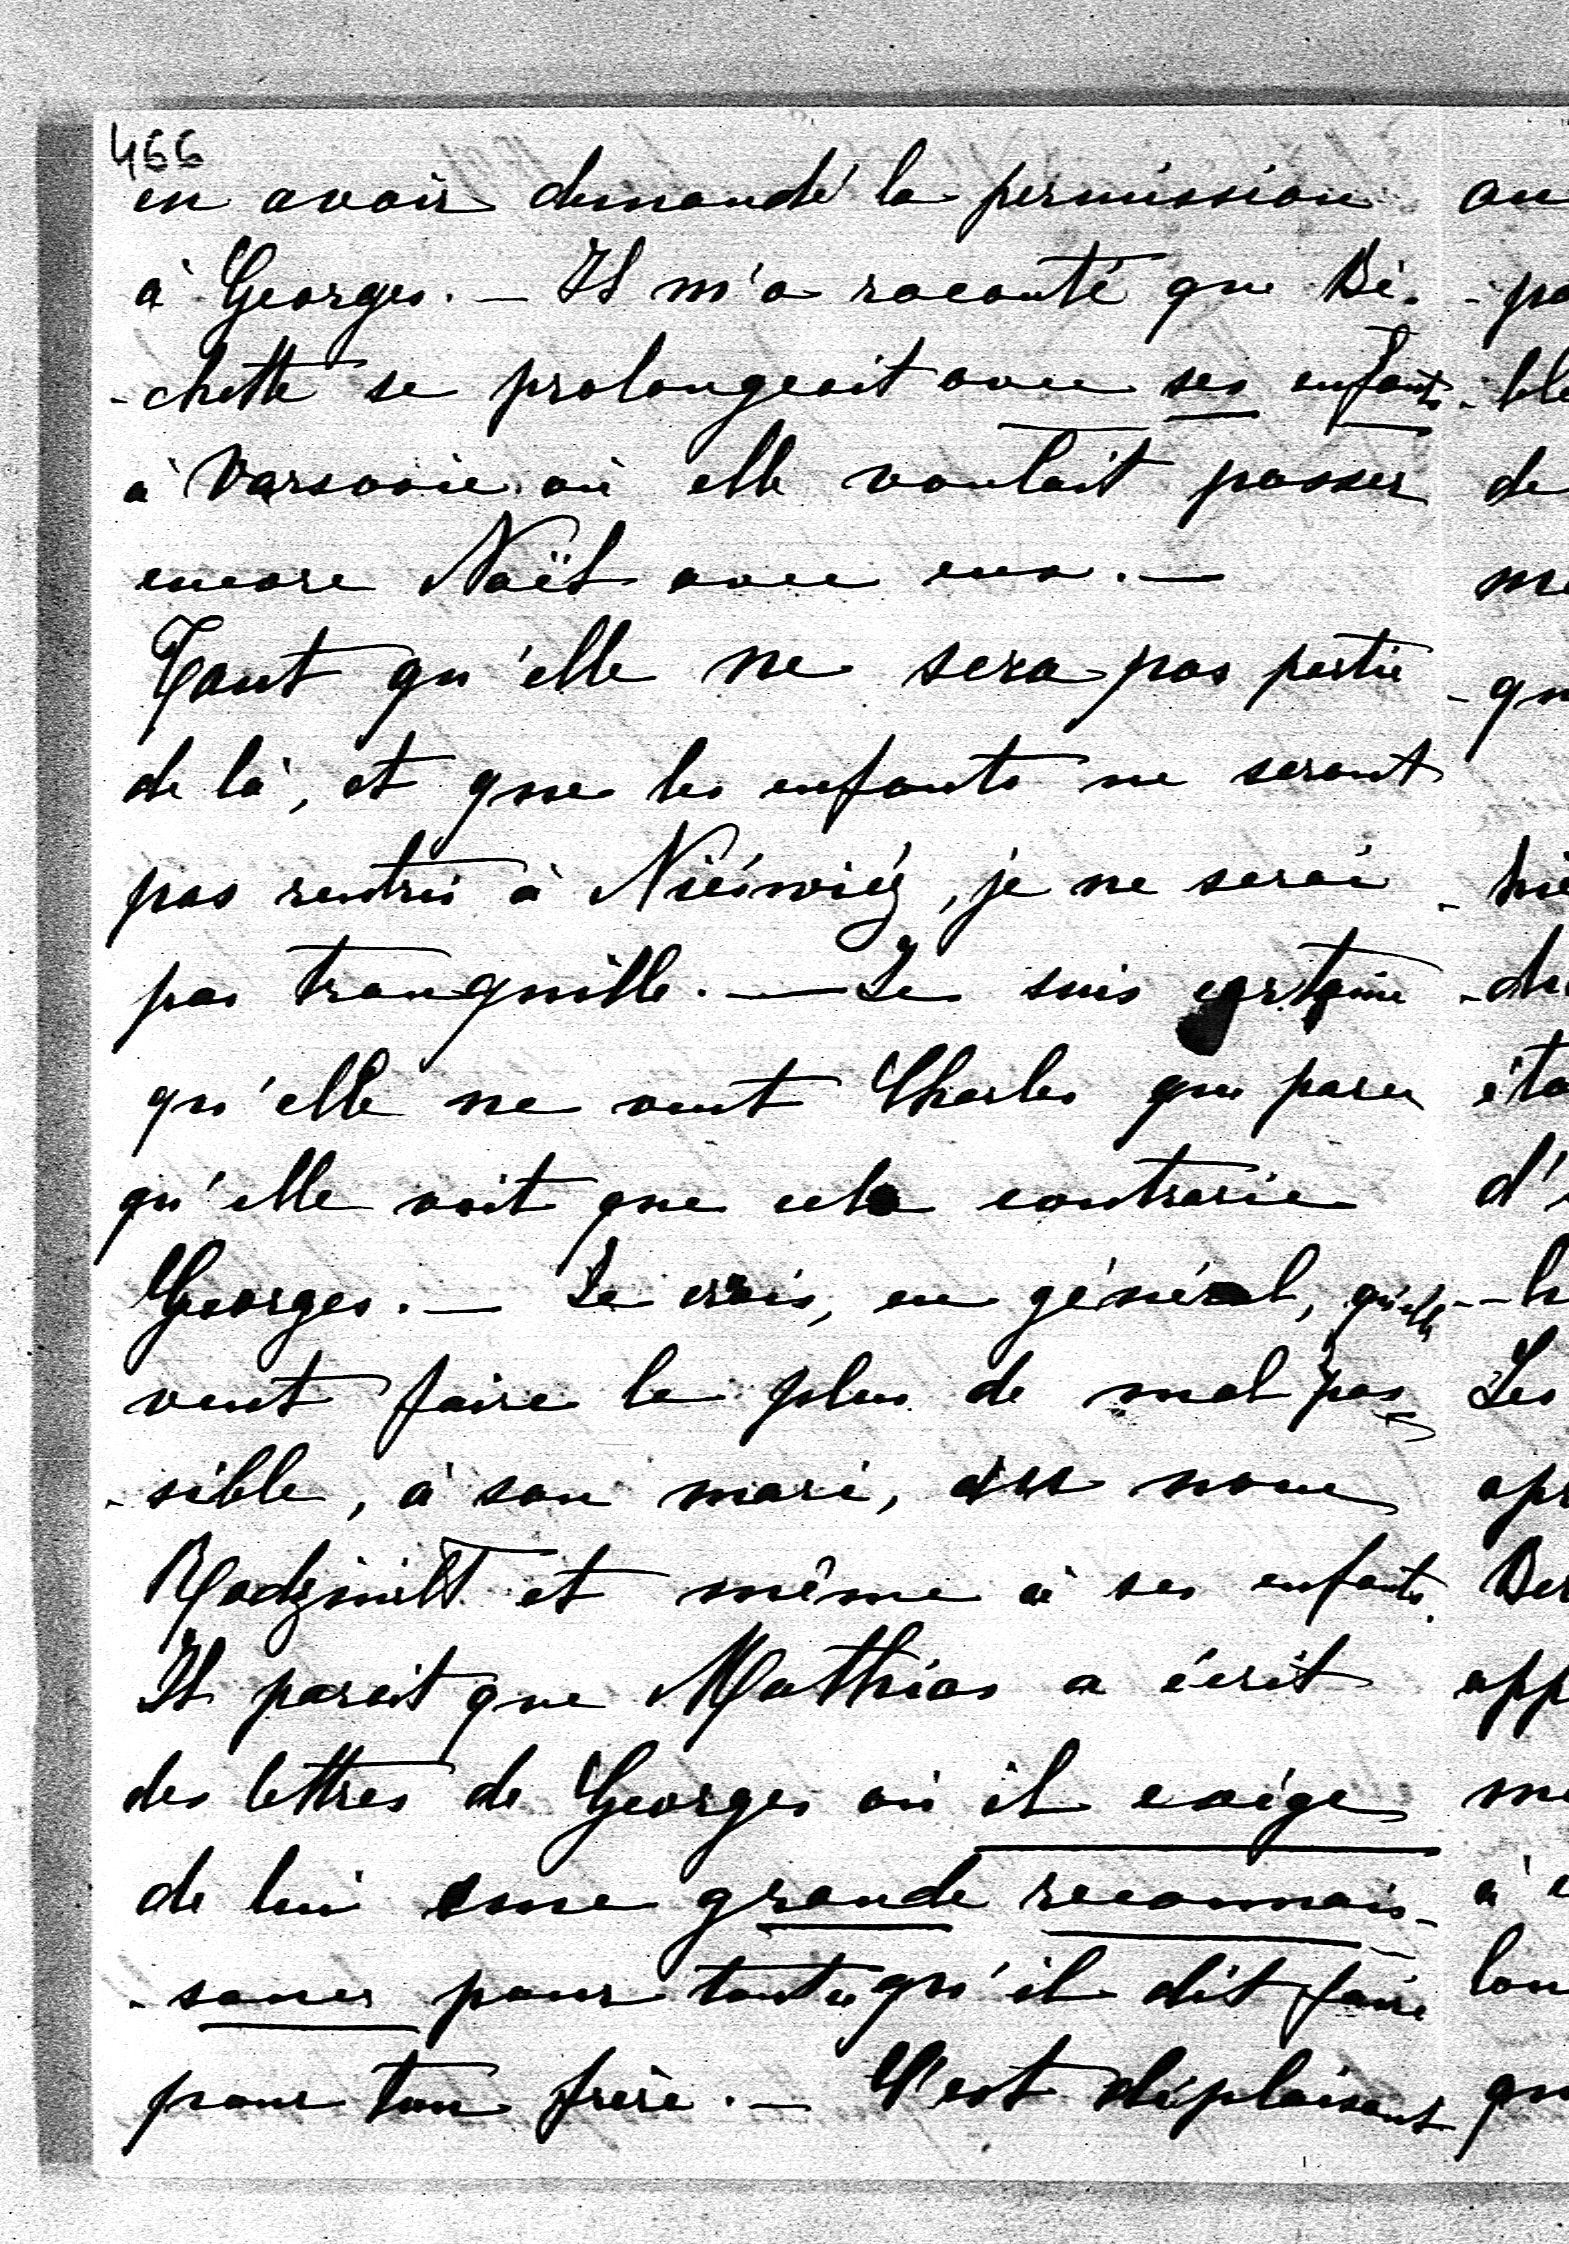 466
en avoir demandé la permission
à Georges. — Il m'a raconté que Bi-
-chette se prolongeait avec ses enfants
à Varsovie où elle voulait passer
encore Noël avec eux. —
Tant qu'elle ne sera pas partie
de là, et que les enfants ne seront
pas rentrés à Nieświéz, je ne serai
pas tranquille. — Je suis certaine
qu'elle ne veut Charles que parce
qu'elle voit que cela contrarie
Georges. — Je crois, en général, qu'elle
veut faire le plus de mal pos
-sible, à son mari, au nom
Radziwill et même à ses enfants.
Il parait que Mathias a écrit
des lettres de Georges où il exige
de lui une grande reconnais-
-sance pour tout ce qu'il dit faire
pour ton frère. — C'est déplaisant